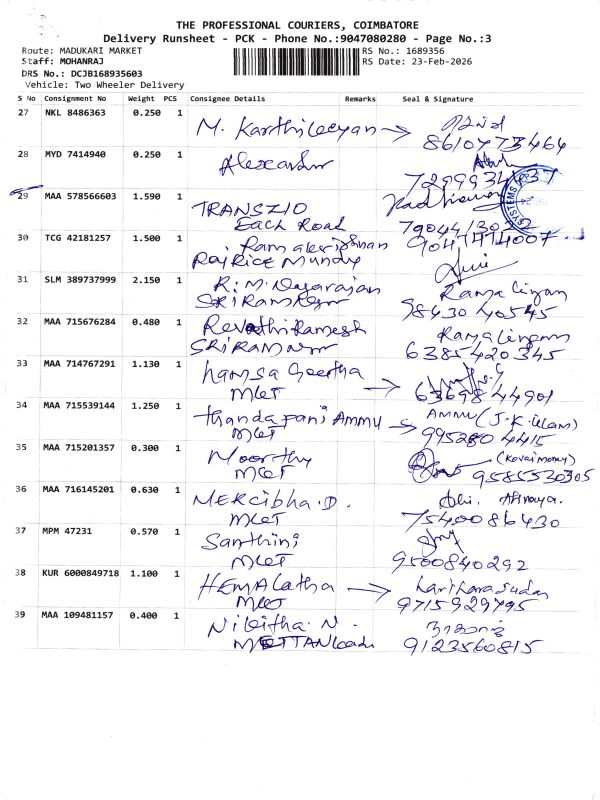 THE PROFESSIONAL COURIERS, COIMBATORE
Delivery Runsheet - PCK - Phone No.:9047080280 - Page No.:3
Route: MADUKARI MARKET RS No.: 1689356
Staff: MOHANRAJ RS Date: 23-Feb-2026
DRS No.: DCJB168935603
Vehicle: Two Wheeler Delivery
S No Consignment No Weight PCS Consignee Details Remarks Seal & Signature
27 NKL 8486363 0.250 1 M. Karthikeyan
8610473464
28 MYD 7414940 0.250 1 Alexander
7299934637
29 MAA 578566603 1.590 1 TRANSZIO
Each Road
30 TCG 42181257 1.500 1 Ramakrishnan 9047474007
Raj Rice Mundy
31 SLM 389737999 2.150 1 R.M. Nagarajan Ramalingam
SRIRAM Ngr 98430 40545
32 MAA 715676284 0.480 1 Revathi Ramesh Ramalingam
SRIRAM Ngr 6385420345
33 MAA 714767291 1.130 1 hamsa Geetha
MKT 6369844901
34 MAA 715539144 1.250 1 Thandapani Ammu AMMU (J.K. illam)
MKT 995280 4415
35 MAA 715201357 0.300 1 Moorthy (Kovai money)
MKT 9585530305
36 MAA 716145201 0.630 1 MERcibha.D. Abi. Abinaya.
MKT 7540086430
37 MPM 47231 0.570 1 Santhini
MKT 9500840292
38 KUR 6000849718 1.100 1 HEMAlatha hariharasudan
MKT 9715929795
39 MAA 109481157 0.400 1 Nikitha N.
9123560815